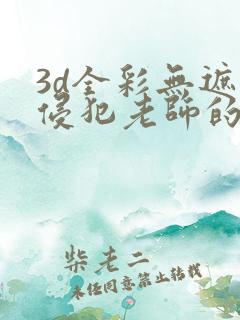 3d全彩無遮
侵犯老師的
柴老二
未任同意禁止转载